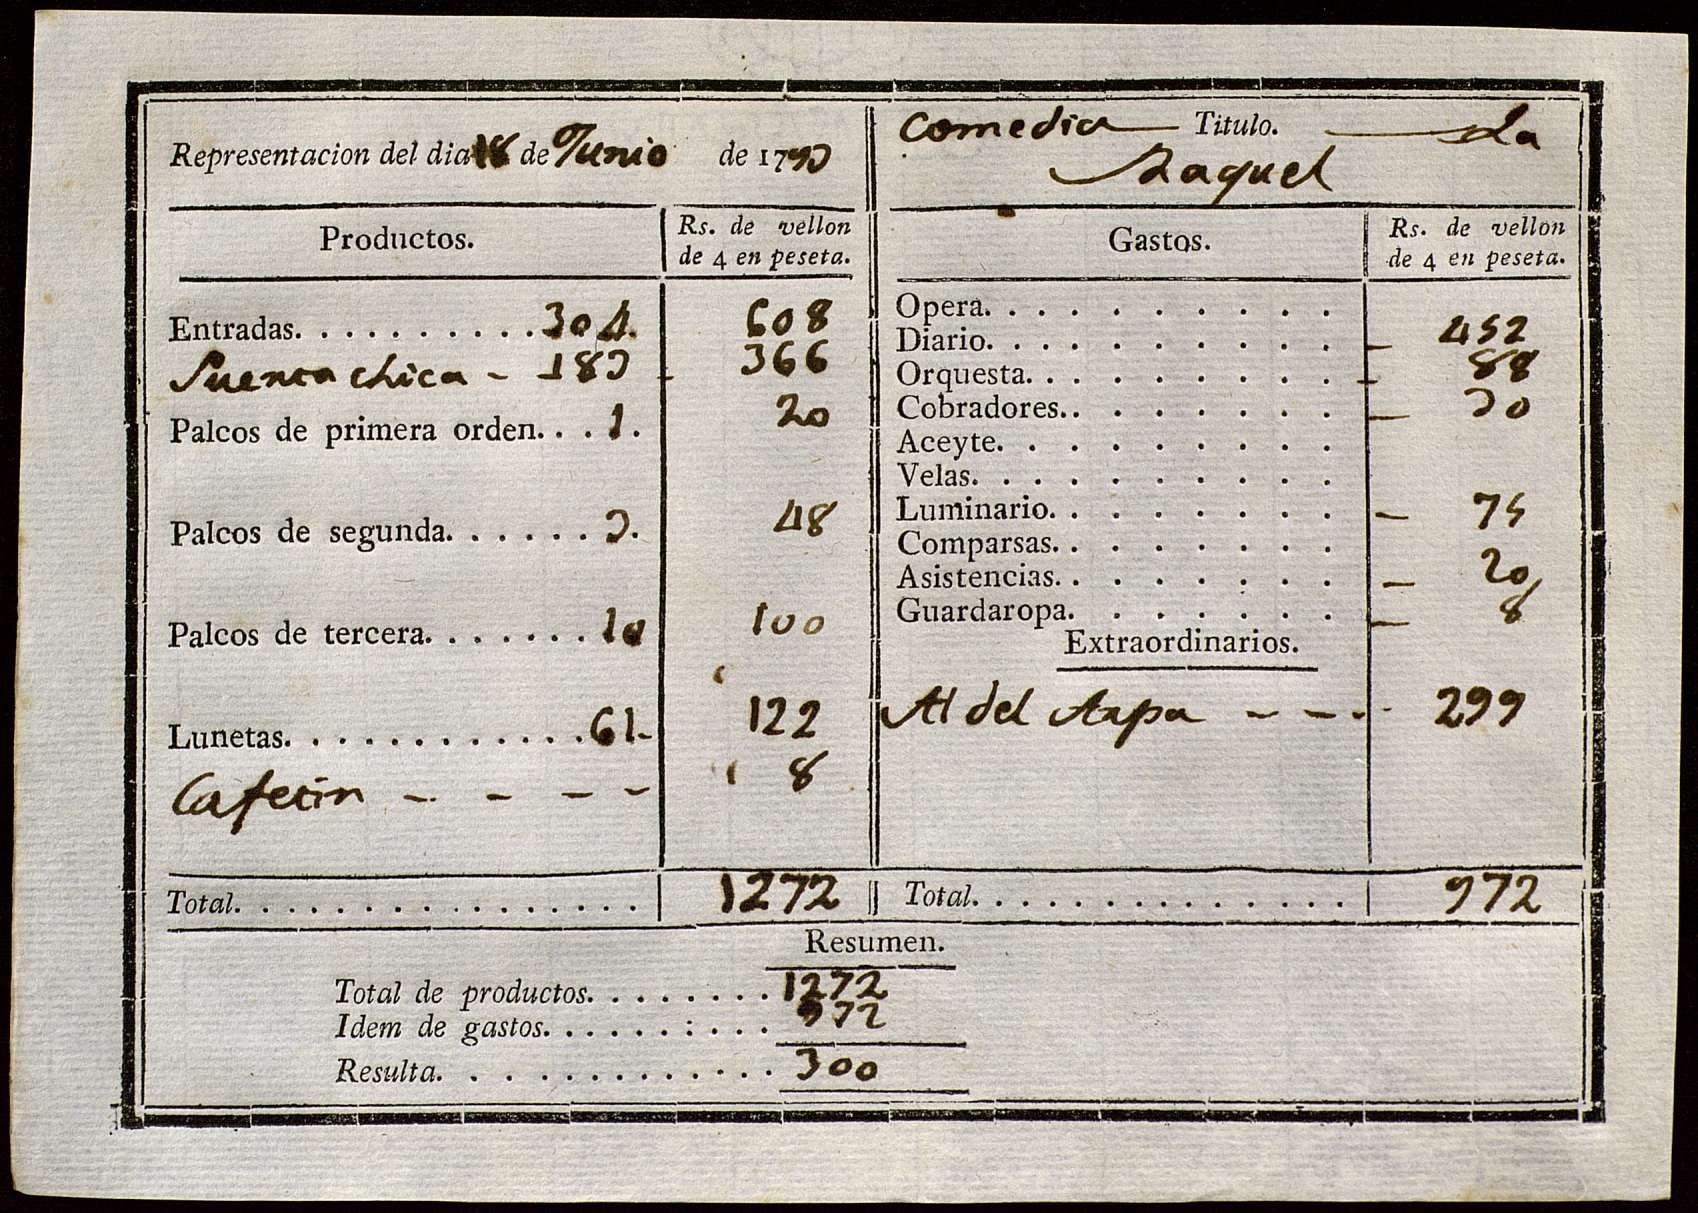 Representacion del dia 18 de Junio de 1790
Comedia Titulo. La
Raquel
Productos. Rs. de vellon de 4 en peseta.
Entradas. . . . . . . . . . 304. 608
Puerta chica - 183 - 366
Palcos de primera orden. . . 1. 20
Palcos de segunda. . . . . . 3. 48
Palcos de tercera. . . . . . . 10 100
Lunetas. . . . . . . . . . . . 61. 122
Cafetin - - - - 8
Total. . . . . . . . . . . . . . . . 1272
Gastos. Rs. de vellon de 4 en peseta.
Opera. . . . . . . . . .
Diario. . . . . . . . . . - 452
Orquesta. . . . . . . . . - 88
Cobradores. . . . . . . . - 30
Aceyte. . . . . . . . .
Velas. . . . . . . . . .
Luminario. . . . . . . . - 75
Comparsas. . . . . . . .
Asistencias. . . . . . . . - 20
Guardaropa. . . . . . . - 8
Extraordinarios.
Al del Arpa - - - - 299
Total. . . . . . . . . . . . . . . 972
Resumen.
Total de productos. . . . . . . . 1272
Idem de gastos. . . . . . : . . . 972
Resulta. . . . . . . . . . . . . 300